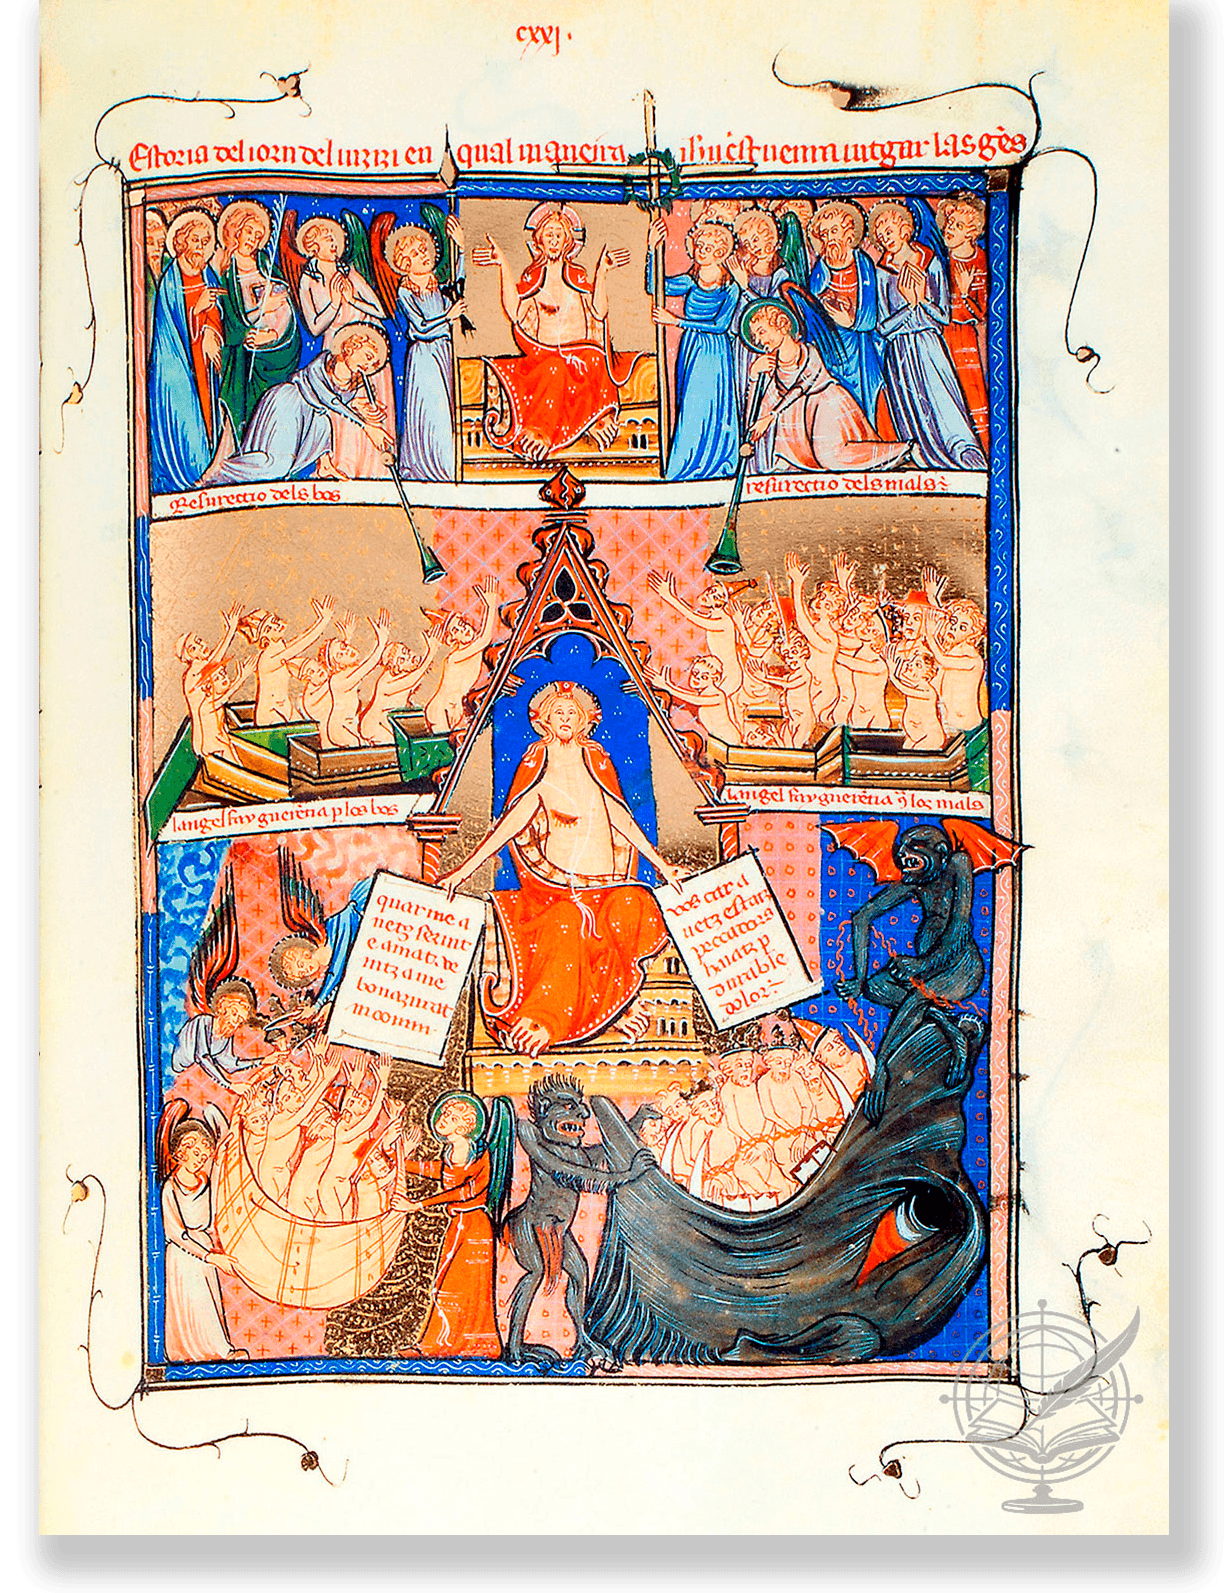 cxxj.
Estoria del iorn del iuzizi en qual maneira ihu crist uenra iutgar las gēs
Resurectio dels bos
resurectio dels mals
langel fay guerentia p los bos
langel fay guerentia q̄ los mals
quar me a
uetz seruit
e amat. ue
nitz a me
bonazurat
in domini.
vos car a
uetz estat
peccadors
haiatz p
durable
dolor